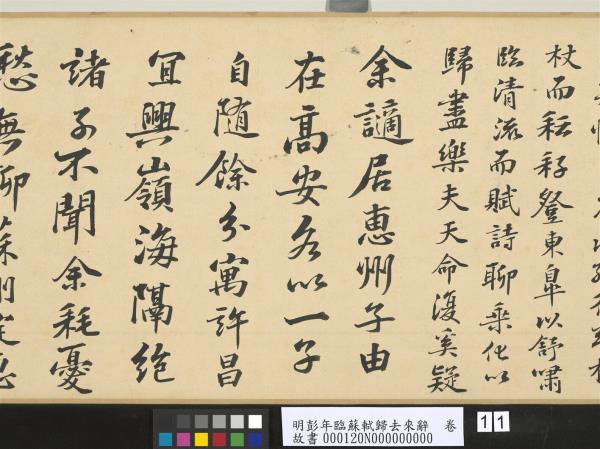 杖而耘耔登東皐以舒嘯
臨清流而賦詩聊乘化以
歸盡樂夫天命復奚疑
余謫居惠州子由
在高安各以一子
自随餘分寓許昌
宜興嶺海隔絶
諸子不聞余耗憂
愁無聊蘇州定惠
明彭年臨蘇軾歸去來辭 卷 11
故書000120N000000000